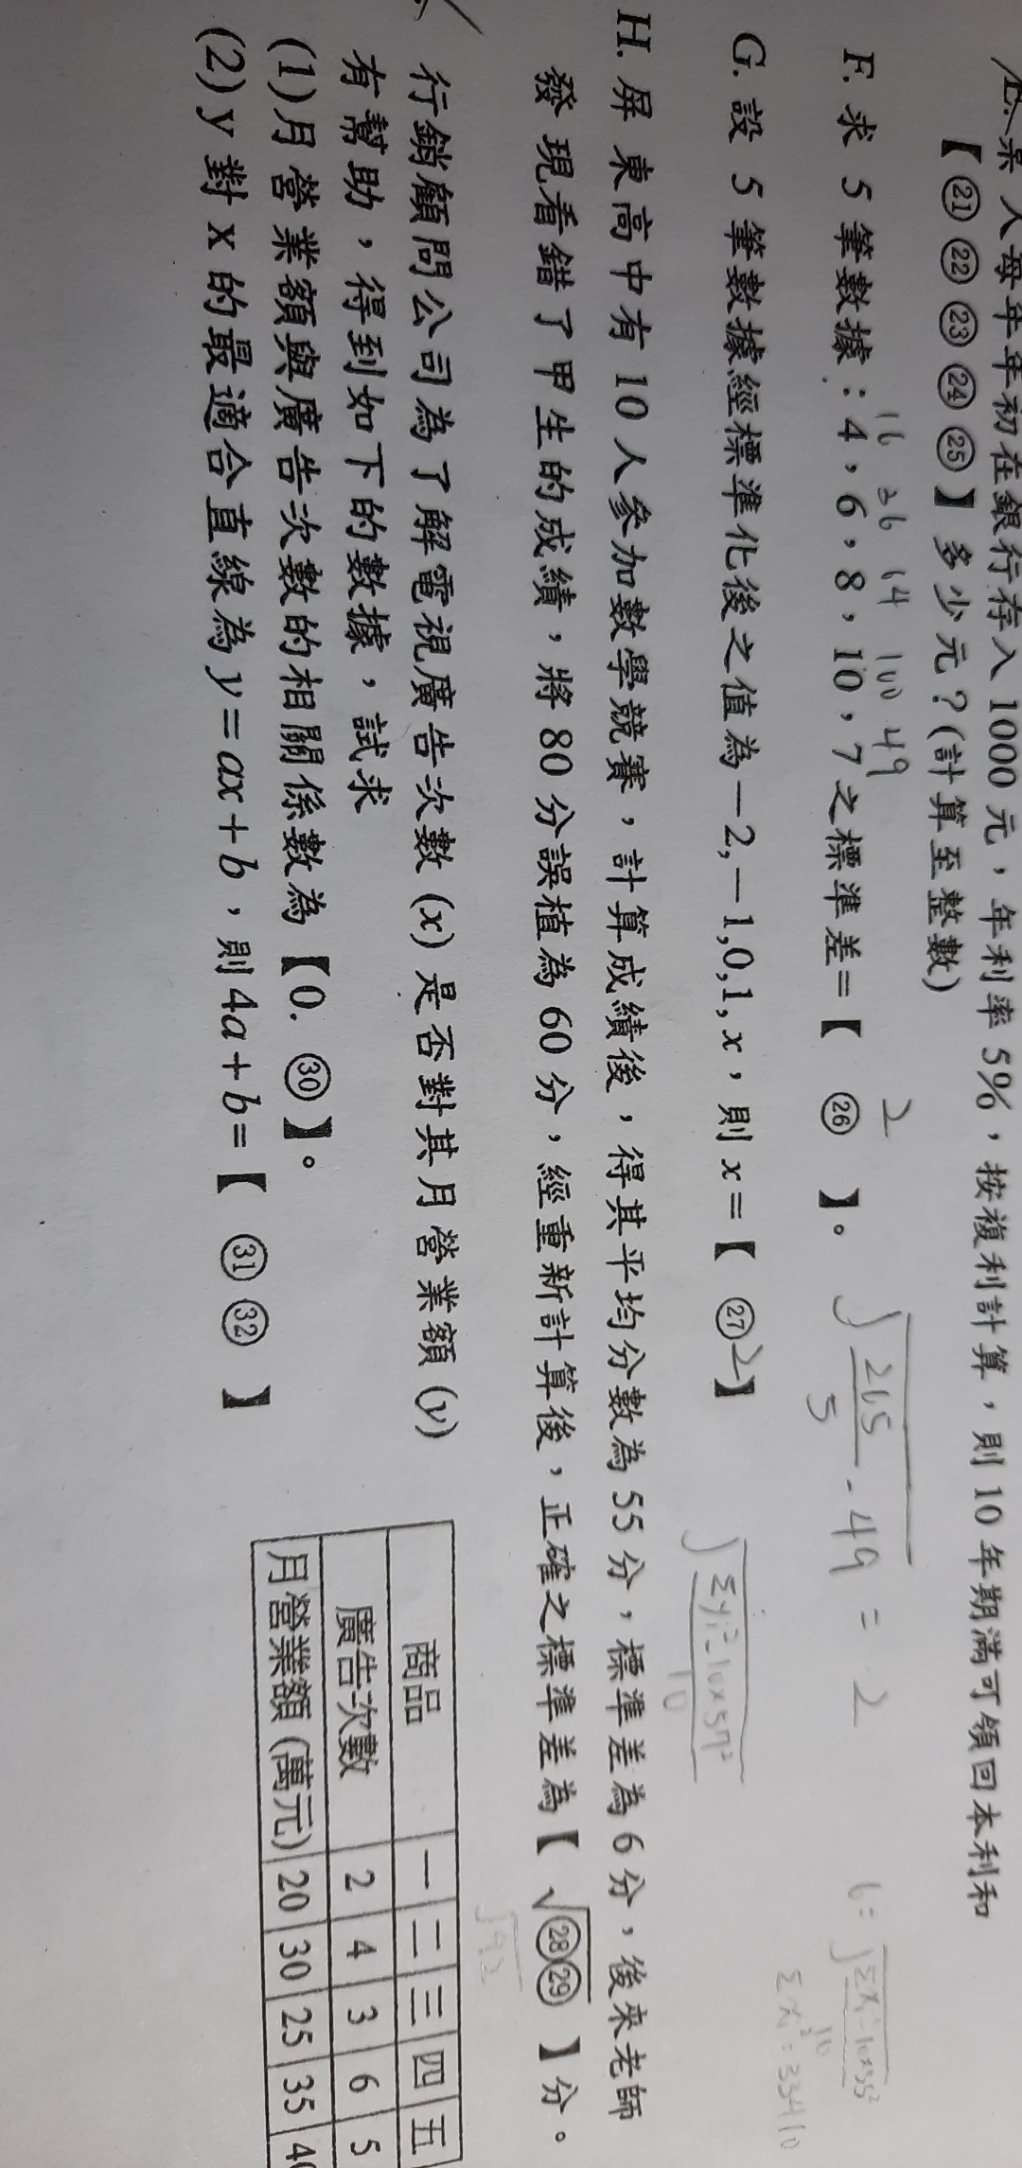 E. 某人每年年初在銀行存入 1000 元，年利率 5%，按複利計算，則 10 年期滿可領回本利和
【㉑㉒㉓㉔㉕】多少元？(計算至整數)
16 36 64 100 49
F. 求 5 筆數據：4，6，8，10，7 之標準差=【 ㉖ 】。
2
√(265/5 - 49) = 2
G. 設 5 筆數據經標準化後之值為－2,－1,0,1, x，則 x =【 ㉗ 】
2
H. 屏東高中有 10 人參加數學競賽，計算成績後，得其平均分數為 55 分，標準差為 6 分，後來老師
發現看錯了甲生的成績，將 80 分誤植為 60 分，經重新計算後，正確之標準差為【 √㉘㉙ 】分。
行銷顧問公司為了解電視廣告次數 (x) 是否對其月營業額 (y)
有幫助，得到如下的數據，試求
(1)月營業額與廣告次數的相關係數為【0. ㉚】。
(2) y 對 x 的最適合直線為 y = ax + b，則 4a + b =【 ㉛㉜ 】
商品 一 二 三 四 五
廣告次數 2 4 3 6 5
月營業額 (萬元) 20 30 25 35 40